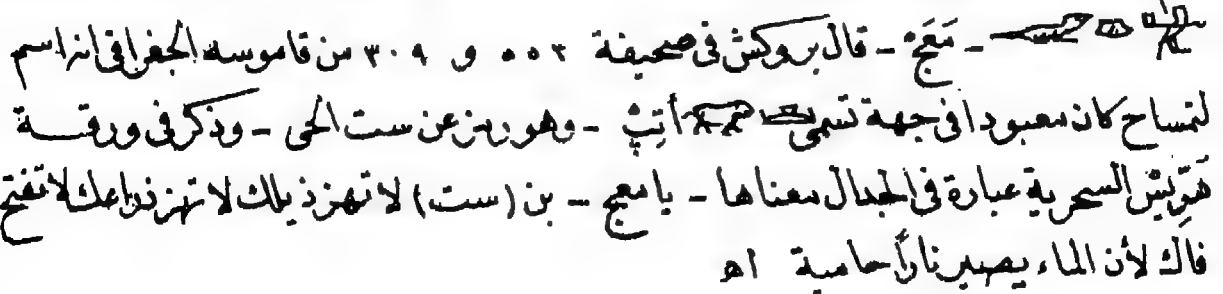 ـ مَعَجْ ـ قال بروكش فى صحيفة ٥٥٣ و ٣٠٩ من قاموسه الجغرافى انه اسم
لتمساح كان معبودا فى جهة تسمى أتِبْ ـ وهو رمز عن ست الحى ـ وذكر فى ورقــة
هَرِّيْس السحرية عبارة فى الجدال معناها ـ يا معج ـ بن (ست) لا تهز ذيلك لا تهز ذراعك لا تفتح
فاك لأن الماء يصير نارًا حامية اه